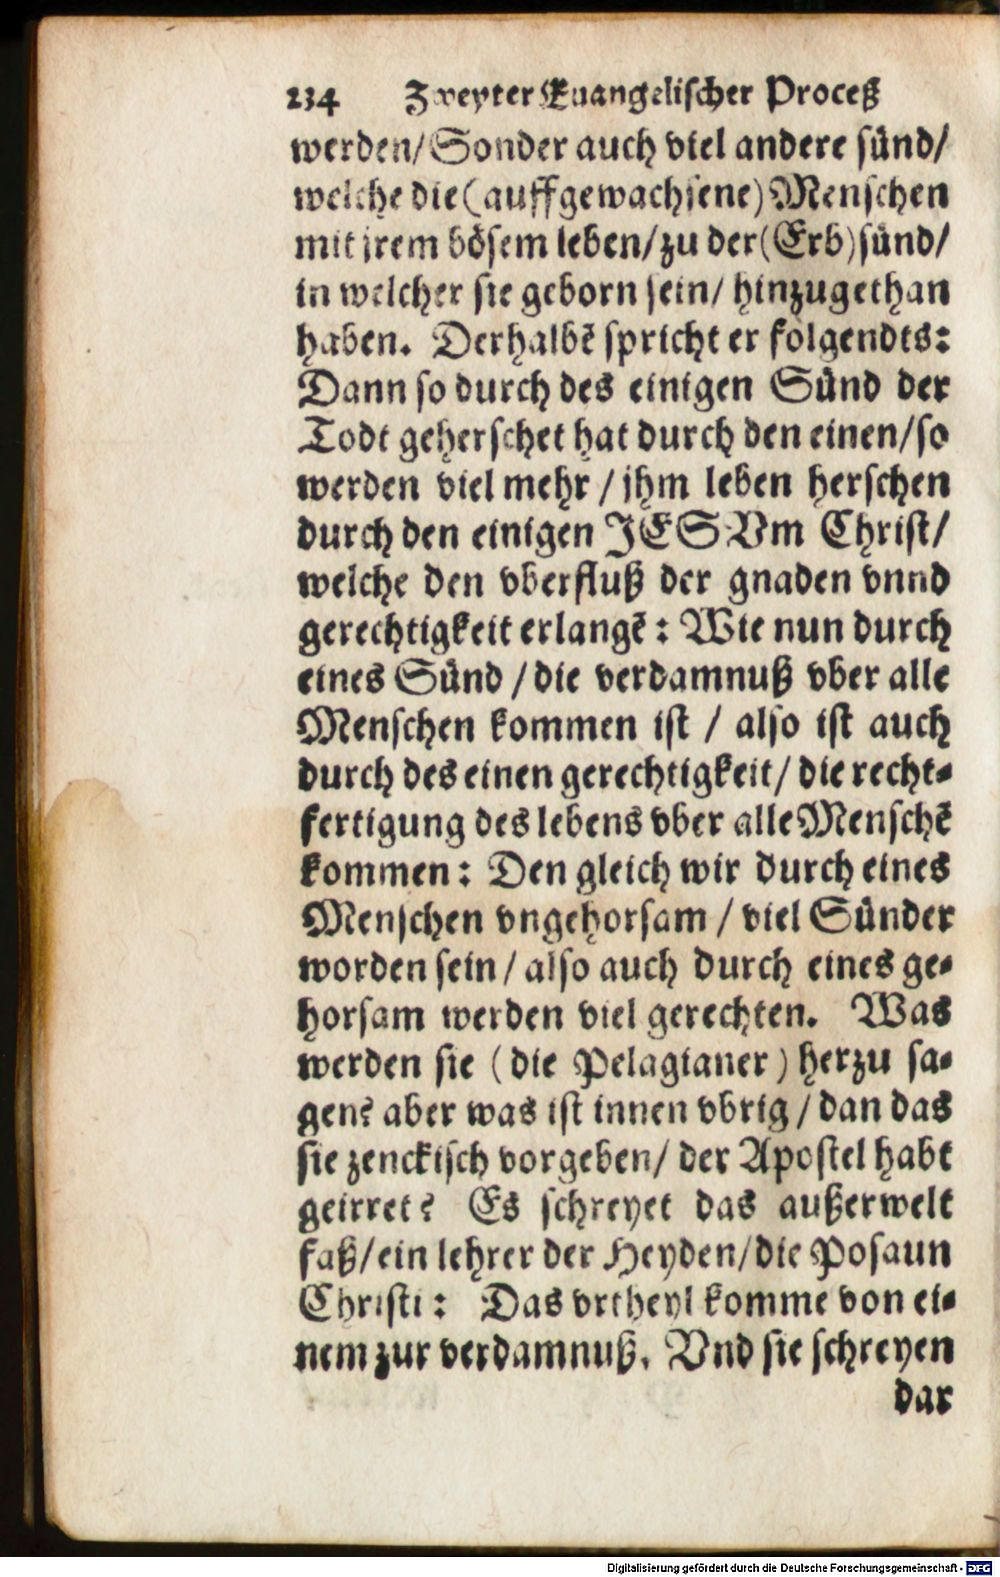 234 Zweyter Euangelischer Proceß
werden/Sonder auch viel andere sünd/
welche die (auffgewachsene) Menschen
mit jrem bösem leben/zu der (Erb)sünd/
in welcher sie geborn sein/ hinzugethan
haben. Derhalbē spricht er folgendts:
Dann so durch des einigen Sünd der
Todt geherschet hat durch den einen/so
werden viel mehr / jhm leben herschen
durch den einigen JESVm Christ/
welche den vberfluß der gnaden vnnd
gerechtigkeit erlangē: Wie nun durch
eines Sünd / die verdamnuß vber alle
Menschen kommen ist / also ist auch
durch des einen gerechtigkeit/ die recht-
fertigung des lebens vber alle Menschē
kommen: Den gleich wir durch eines
Menschen vngehorsam / viel Sünder
worden sein / also auch durch eines ge-
horsam werden viel gerechten. Was
werden sie ( die Pelagianer ) herzu sa-
gen? aber was ist innen vbrig / dan das
sie zenckisch vorgeben/ der Apostel habt
geirret? Es schreyet das außerwelt
faß/ein lehrer der Heyden/die Posaun
Christi: Das vrtheyl komme von ei-
nem zur verdamnuß. Vnd sie schreyen
dar
Digitalisierung gefördert durch die Deutsche Forschungsgemeinschaft - DFG